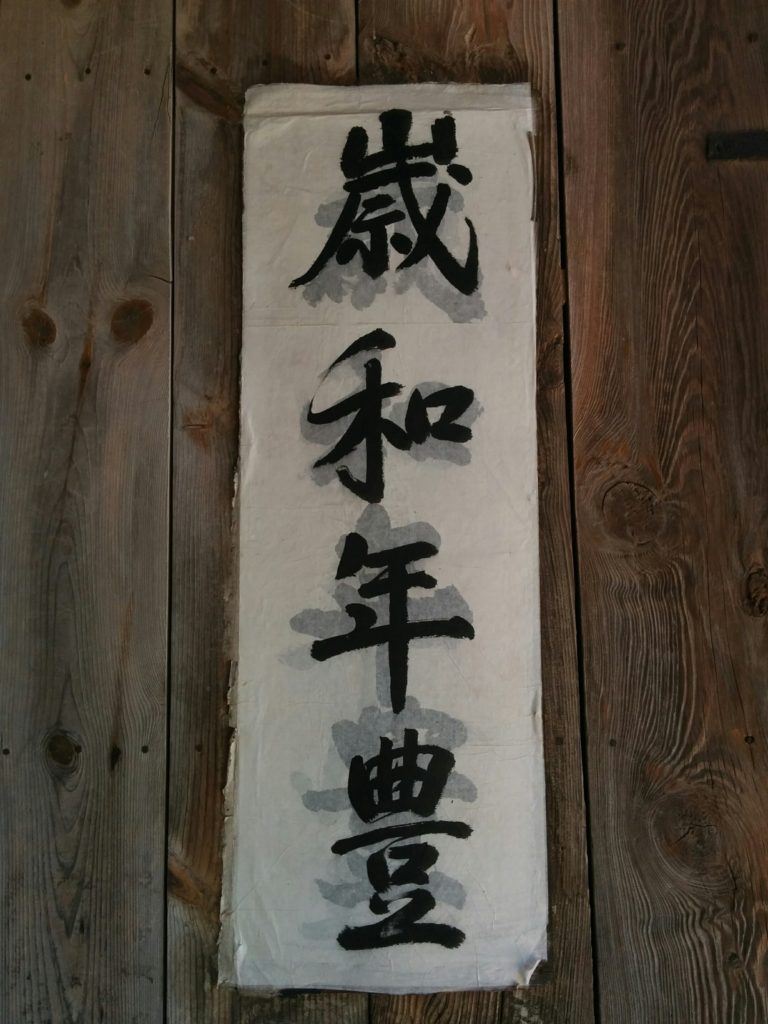 歳和年豊